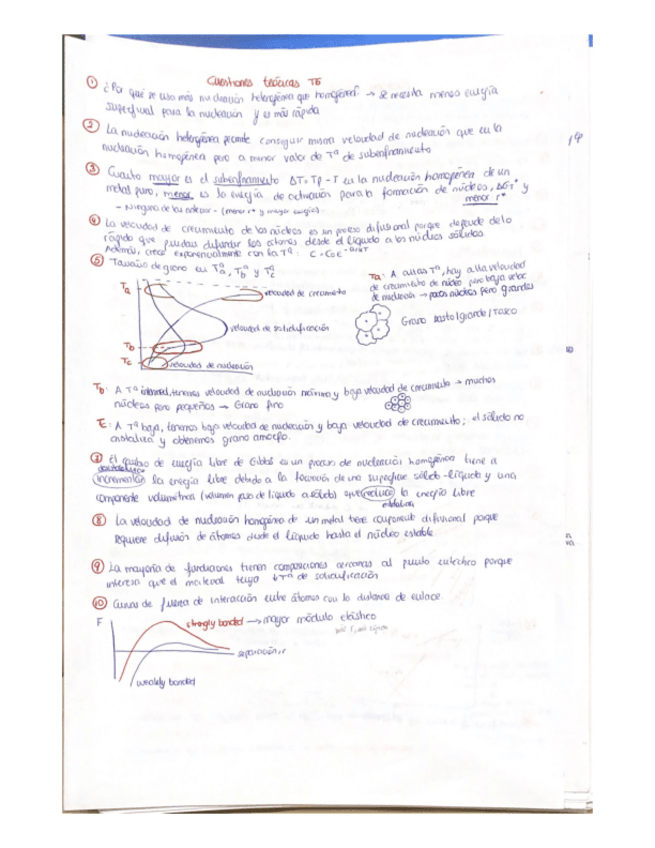 Cuestiones teóricas T6
① ¿Por qué se usa más nucleación heterogénea que homogénea? → se necesita menos energía
superficial para la nucleación y es más rápida
② La nucleación heterogénea permite conseguir misma velocidad de nucleación que en la
nucleación homogénea pero a menor valor de Tª de subenfriamiento
③ Cuanto mayor es el subenfriamiento ΔT = Tf - T en la nucleación homogénea de un
metal puro, menor es la energía de activación para la formación de núcleos, ΔG* y
menor r*
- Ninguna de las anteriores - (menor r* y mayor energía)
④ La velocidad de crecimiento de los núcleos es un proceso difusional porque depende de lo
rápido que puedan difundir los átomos desde el líquido a los núcleos sólidos.
Además, crece exponencialmente con la Tª:
⑤ Tamaño de grano en Tª, Tb y Tc
Ta
velocidad de crecimiento
velocidad de solidificación
Tb
Tc
velocidad de nucleación
Ta: A altas Tª, hay alta velocidad
de crecimiento de núcleo pero baja veloc
de nucleación → pocos núcleos pero grandes
Grano basto/grande/tosco
Tb: A Tª intermed, tenemos velocidad de nucleación máxima y baja velocidad de crecimiento → muchos
núcleos pero pequeños → Grano fino
Tc: A Tª baja, tenemos baja velocidad de nucleación y baja velocidad de crecimiento; el sólido no
cristaliza y obtenemos grano amorfo.
⑦ El cambio de energía libre de Gibbs en un proceso de nucleación homogénea tiene a
incrementar la energía libre debido a la formación de una superficie sólido-líquido y una
componente volumétrica (volumen pasa de líquido a sólido) que reduce la energía libre
⑧ La velocidad de nucleación homogénea de un metal tiene componente difusional porque
requiere difusión de átomos desde el líquido hasta el núcleo estable.
⑨ La mayoría de fundiciones tienen composiciones cercanas al punto eutéctico porque
interesa que el material tenga ↓Tª de solidificación
⑩ Curvas de fuerza de interacción entre átomos con la distancia de enlace
F
strongly bonded → mayor módulo elástico
separación, r
weakly bonded